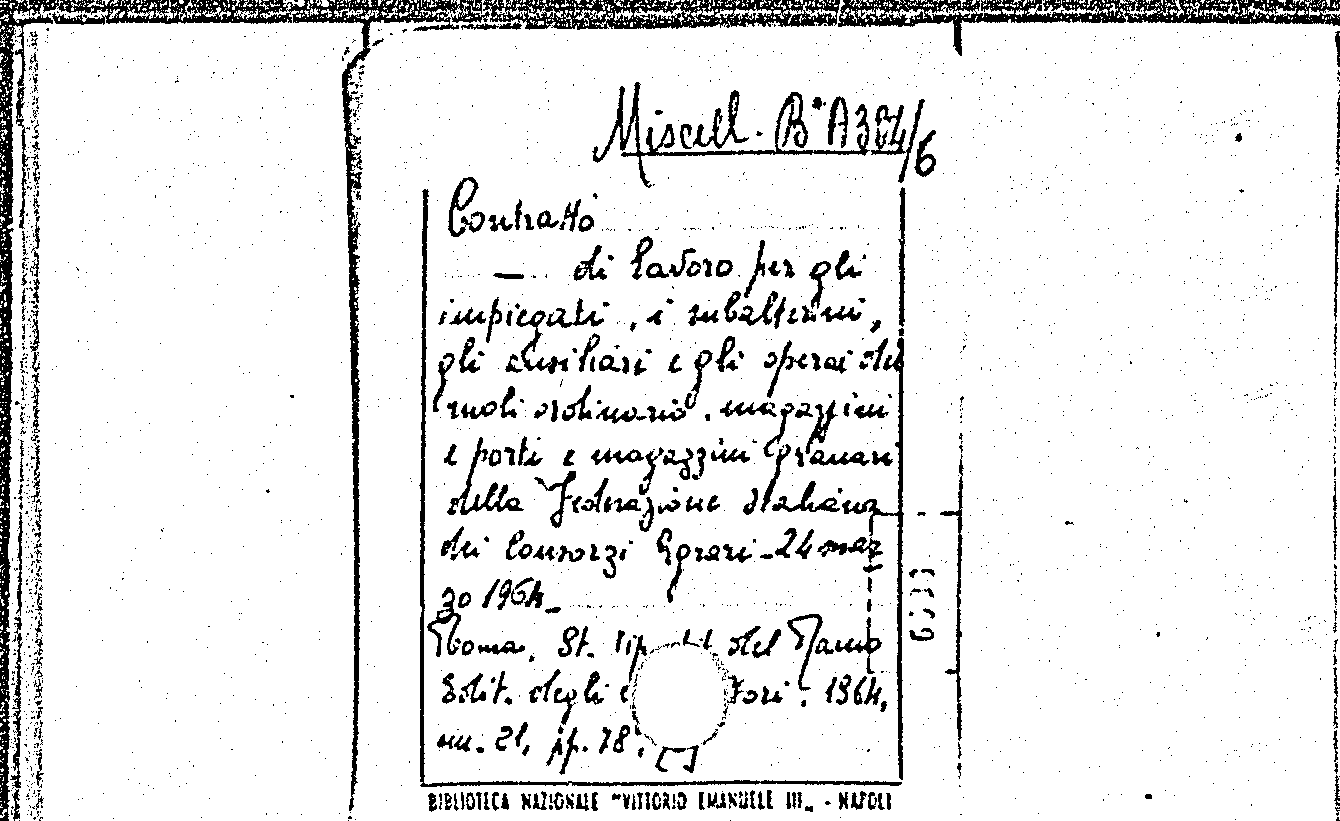 Miscell. B* A384/6
Contratto
— di lavoro per gli
impiegati, i subalterni,
gli ausiliari e gli operai dei
ruoli ordinario, magazzini
e porti e magazzini granari
della Federazione italiana
dei Consorzi Agrari - 24 mar
zo 1964 -
Roma, St. Tip. del Ramo
Edit. degli tori. 1964,
in. 21, pp. 78.
[ ]
BIBLIOTECA NAZIONALE "VITTORIO EMANUELE III„ - NAPOLI